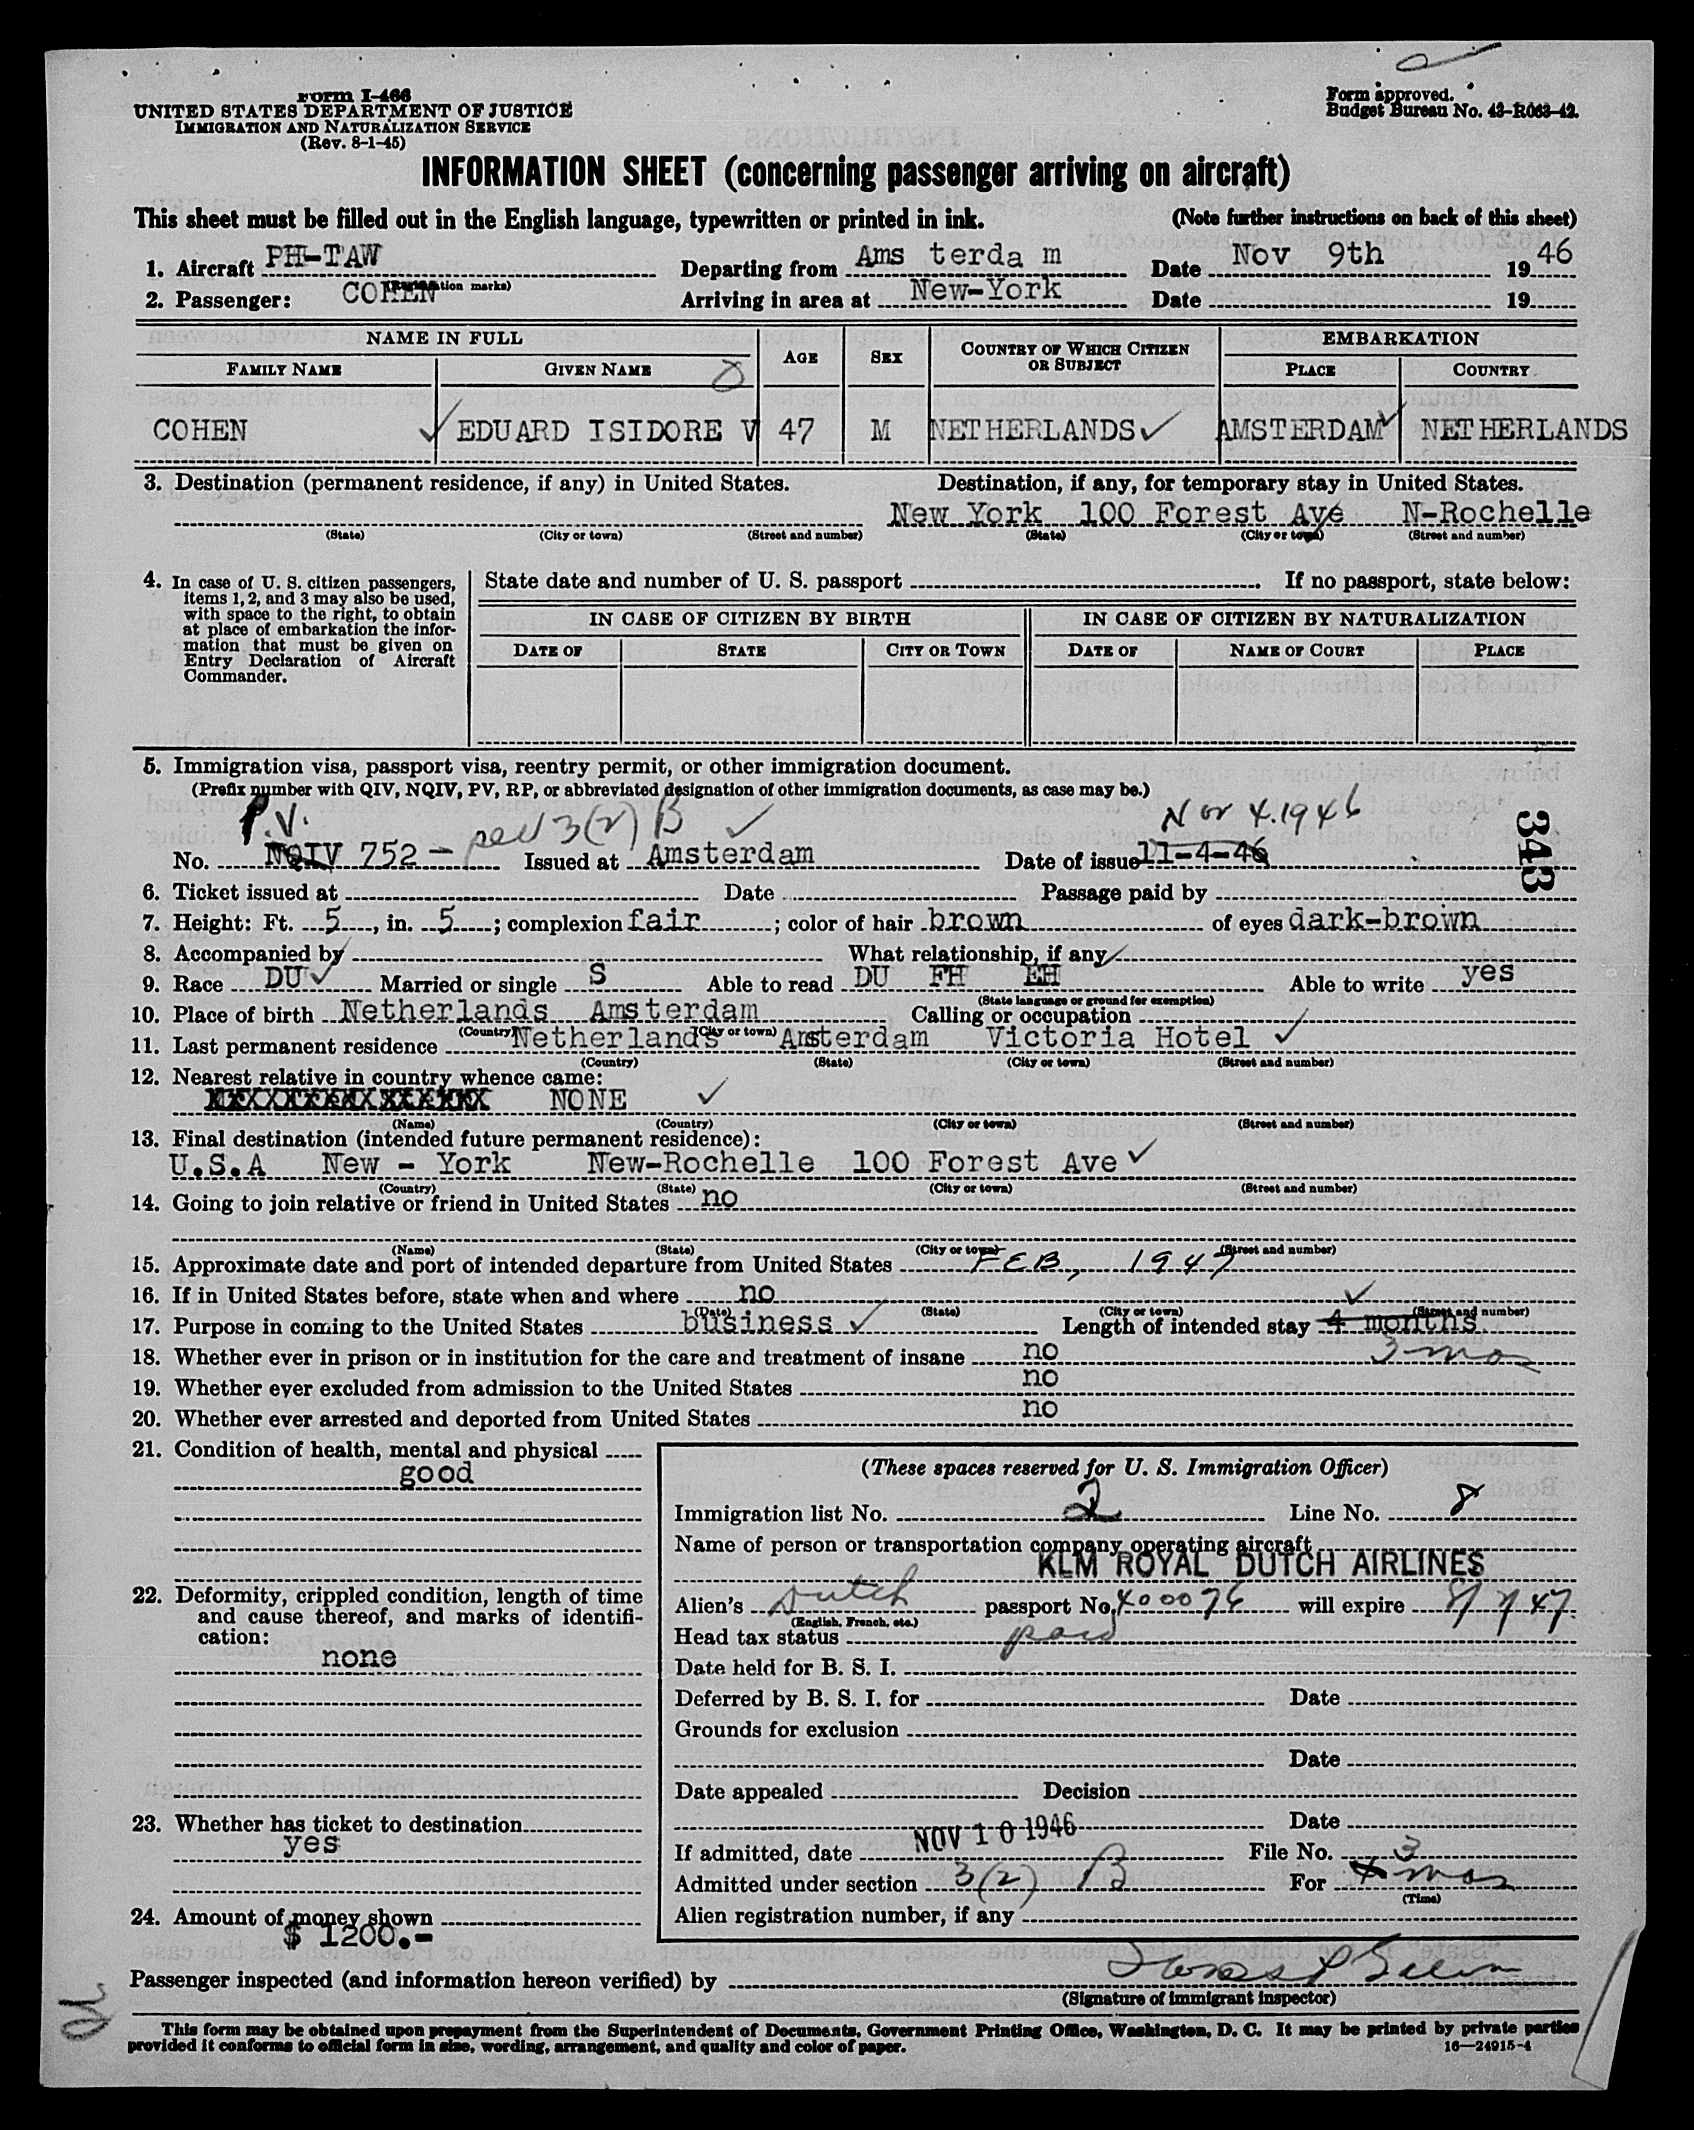 Form I-466
UNITED STATES DEPARTMENT OF JUSTICE
IMMIGRATION AND NATURALIZATION SERVICE
(Rev. 8-1-45)
Form approved.
Budget Bureau No. 43-R063-42.
INFORMATION SHEET (concerning passenger arriving on aircraft)
This sheet must be filled out in the English language, typewritten or printed in ink. (Note further instructions on back of this sheet)
1. Aircraft PH-TAW Departing from Ams terda m Date Nov 9th 1946
(Registration marks)
2. Passenger: COHEN Arriving in area at New-York Date 19
NAME IN FULL AGE SEX COUNTRY OF WHICH CITIZEN OR SUBJECT EMBARKATION
FAMILY NAME GIVEN NAME PLACE COUNTRY
COHEN EDUARD ISIDORE V 47 M NETHERLANDS AMSTERDAM NETHERLANDS
3. Destination (permanent residence, if any) in United States. Destination, if any, for temporary stay in United States.
New York 100 Forest Ave N-Rochelle
(State) (City or town) (Street and number) (State) (City or town) (Street and number)
4. In case of U. S. citizen passengers, items 1, 2, and 3 may also be used, with space to the right, to obtain at place of embarkation the information that must be given on Entry Declaration of Aircraft Commander.
State date and number of U. S. passport If no passport, state below:
IN CASE OF CITIZEN BY BIRTH IN CASE OF CITIZEN BY NATURALIZATION
DATE OF STATE CITY OR TOWN DATE OF NAME OF COURT PLACE
5. Immigration visa, passport visa, reentry permit, or other immigration document.
(Prefix number with QIV, NQIV, PV, RP, or abbreviated designation of other immigration documents, as case may be.)
P.V. 3(2) B Nov 4.1946
No. NQIV 752 - Issued at Amsterdam Date of issue 11-4-46
343
6. Ticket issued at Date Passage paid by
7. Height: Ft. 5, in. 5; complexion fair; color of hair brown of eyes dark-brown
8. Accompanied by What relationship, if any
9. Race DU Married or single S Able to read DU FH EH Able to write yes
(State language or ground for exemption)
10. Place of birth Netherlands Amsterdam Calling or occupation
(Country) (City or town)
11. Last permanent residence Netherlands Amsterdam Victoria Hotel
(Country) (State) (City or town) (Street and number)
12. Nearest relative in country whence came:
NONE
(Name) (Country) (City or town) (Street and number)
13. Final destination (intended future permanent residence):
U.S.A New - York New-Rochelle 100 Forest Ave
(Country) (State) (City or town) (Street and number)
14. Going to join relative or friend in United States no
(Name) (State) (City or town) (Street and number)
15. Approximate date and port of intended departure from United States FEB, 1947
16. If in United States before, state when and where no
(Date) (State) (City or town) (Street and number)
17. Purpose in coming to the United States business Length of intended stay 4 months
3 mos
18. Whether ever in prison or in institution for the care and treatment of insane no
19. Whether ever excluded from admission to the United States no
20. Whether ever arrested and deported from United States no
21. Condition of health, mental and physical
good
22. Deformity, crippled condition, length of time and cause thereof, and marks of identification:
none
23. Whether has ticket to destination
yes
24. Amount of money shown
$ 1200.-
(These spaces reserved for U. S. Immigration Officer)
Immigration list No. 2 Line No. 8
Name of person or transportation company operating aircraft
KLM ROYAL DUTCH AIRLINES
Alien's Dutch passport No. 400076 will expire 8/7/47
(English, French, etc.)
Head tax status paid
Date held for B. S. I.
Deferred by B. S. I. for Date
Grounds for exclusion
Date
Date appealed Decision
Date
If admitted, date NOV 10 1946 File No.
Admitted under section 3(2) B For 3 mos
(Time)
Alien registration number, if any
Passenger inspected (and information hereon verified) by
(Signature of immigrant inspector)
This form may be obtained upon prepayment from the Superintendent of Documents, Government Printing Office, Washington, D. C. It may be printed by private parties
provided it conforms to official form in size, wording, arrangement, and quality and color of paper. 16—24915-4